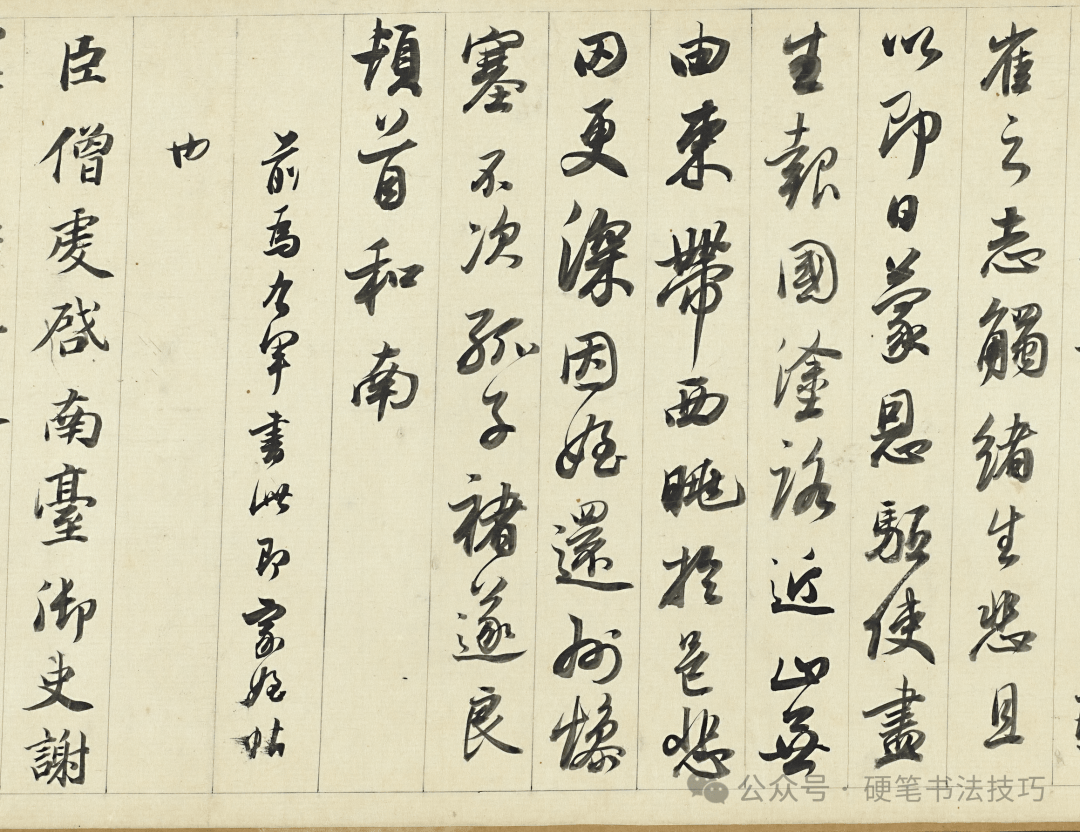 雀之志觸緒生悲且
以即日蒙恩驅使盡
生報國塗路近止無
由束帶西眺於邑悲
罔更深因姪還州慘
塞不次孤子褚遂良
頓首和南
前為右軍書此即家姪帖
也
臣僧虔啓南臺御史謝
公众号 · 硬笔书法技巧